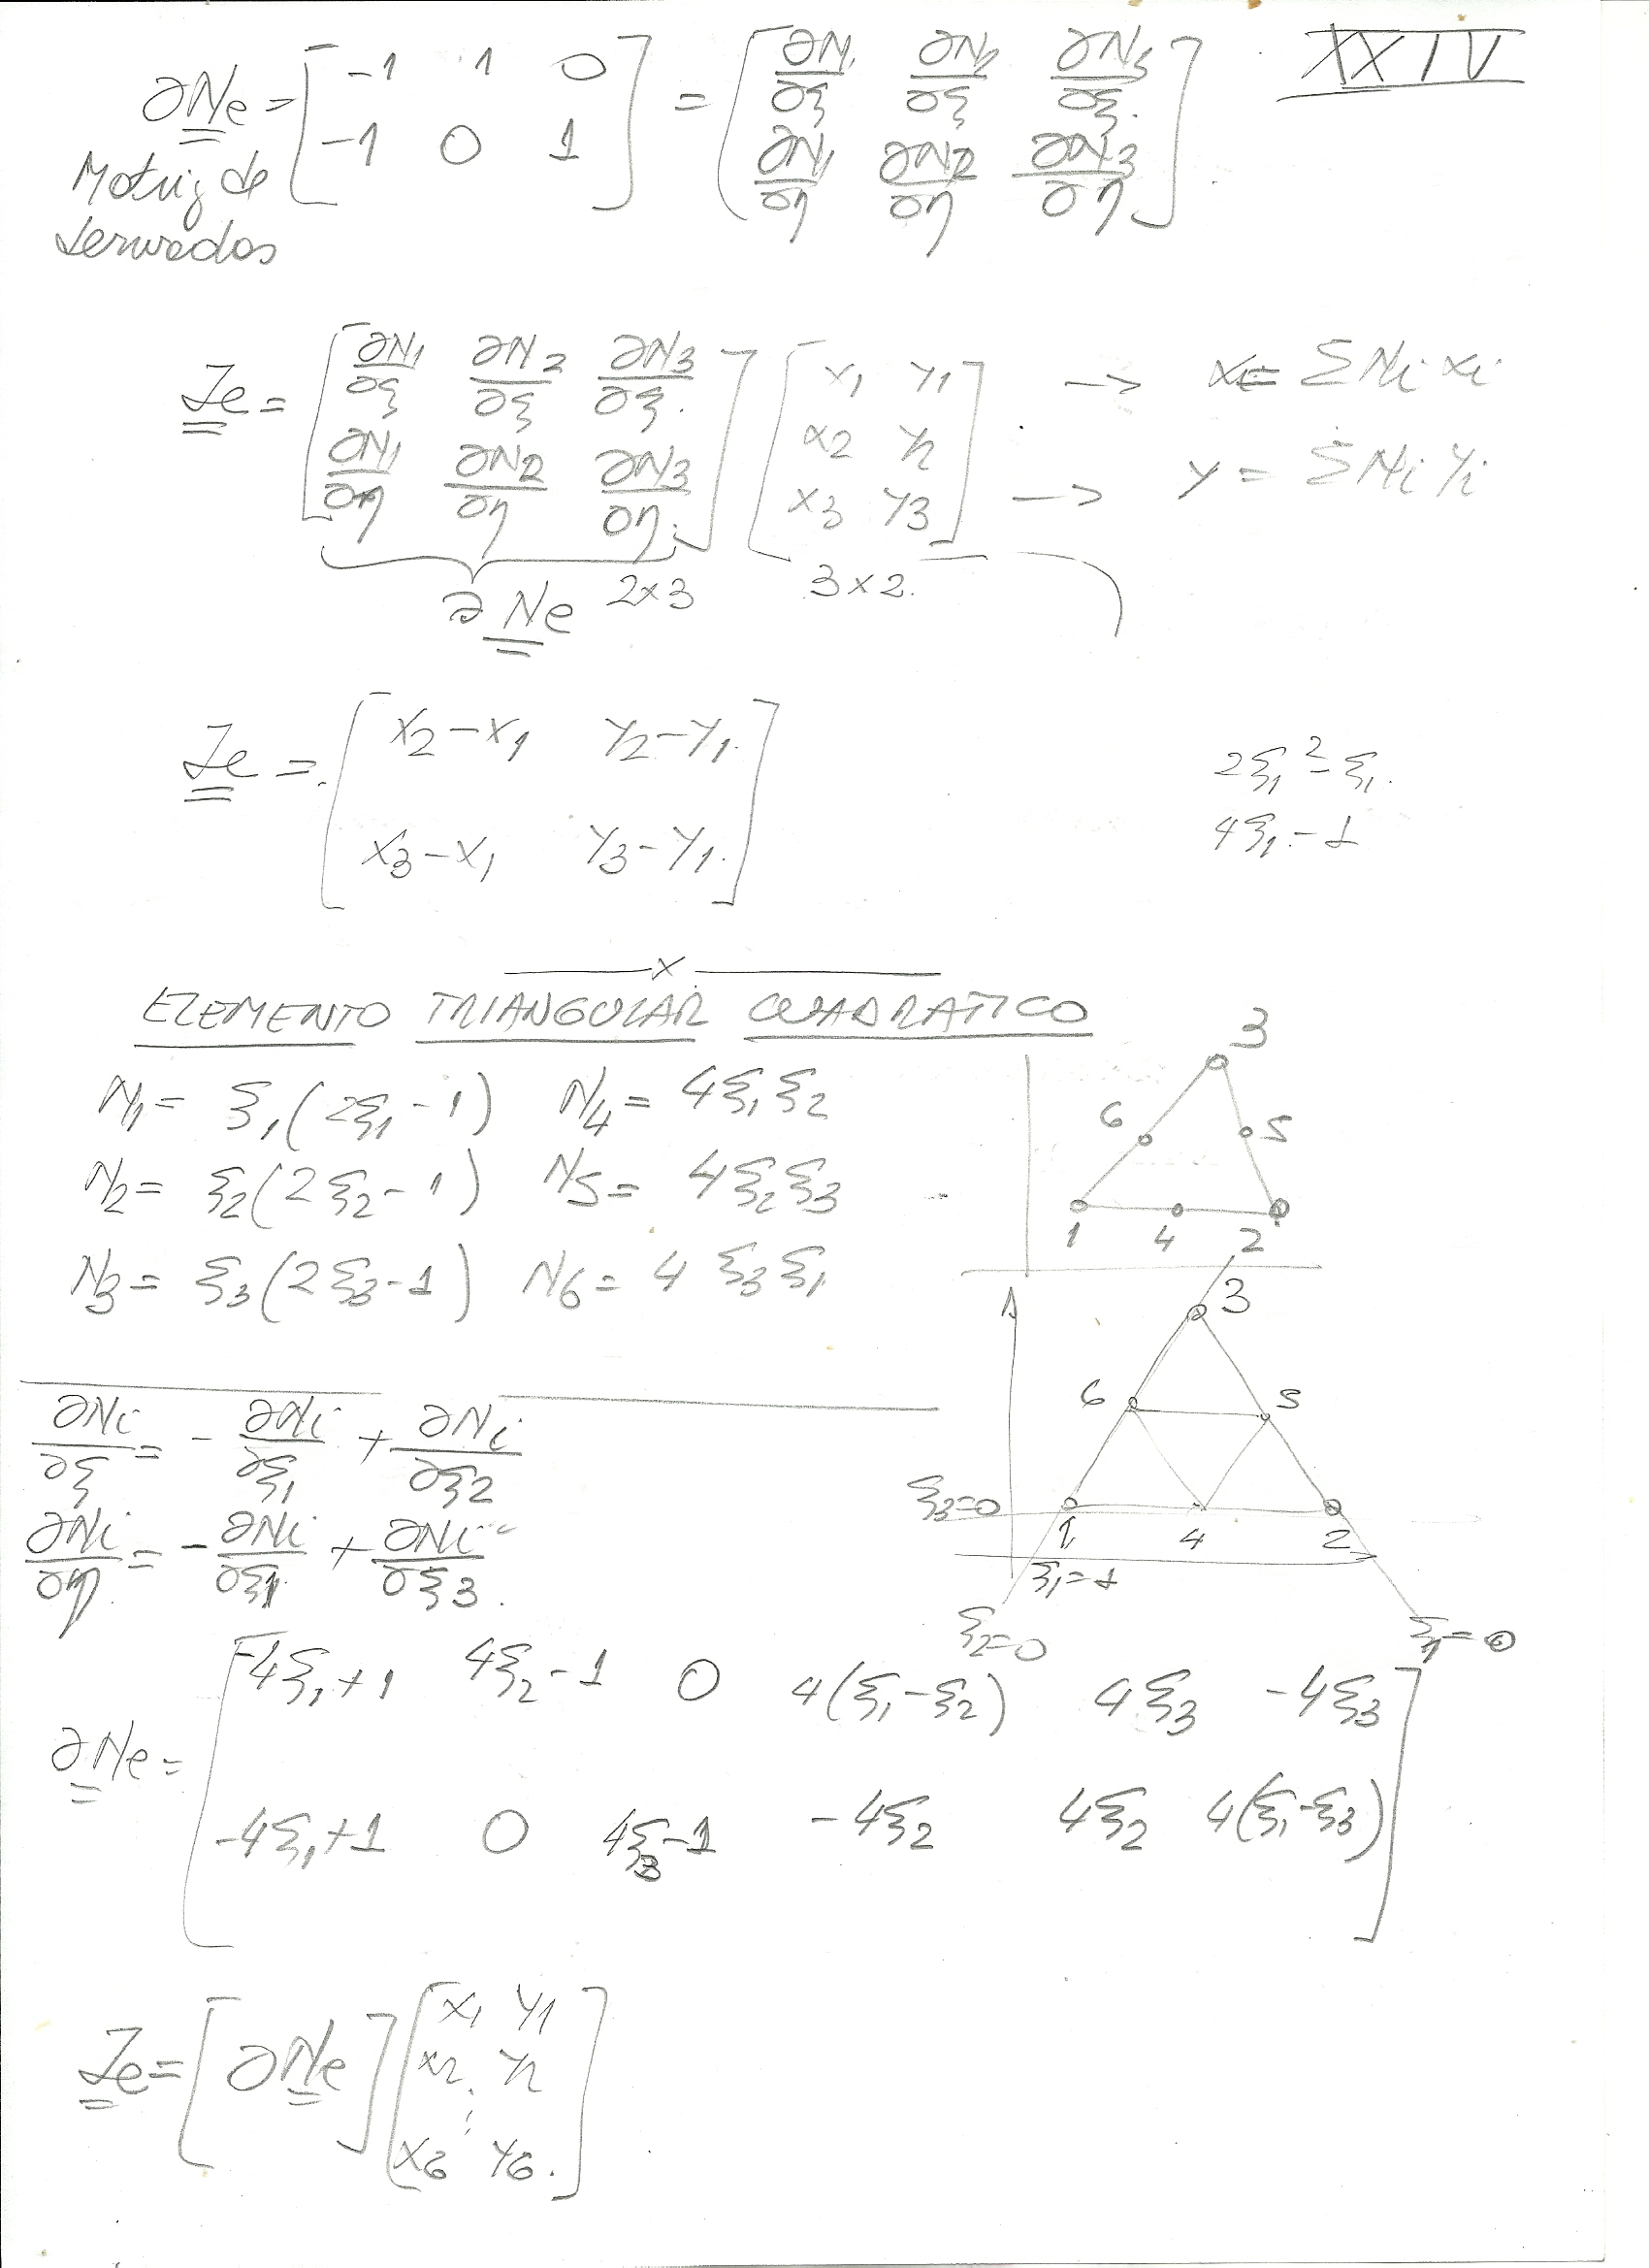 XXIV
∂Ne = [ -1 1 0 ; -1 0 1 ] = [ ∂N1/∂ξ ∂N2/∂ξ ∂N3/∂ξ ; ∂N1/∂η ∂N2/∂η ∂N3/∂η ]
Matriz de
derivadas
Je = [ ∂N1/∂ξ ∂N2/∂ξ ∂N3/∂ξ ; ∂N1/∂η ∂N2/∂η ∂N3/∂η ] [ x1 y1 ; x2 y2 ; x3 y3 ] → x = ΣNi xi
→ y = ΣNi yi
∂Ne 2x3 3x2
Je = [ x2-x1 y2-y1 ; x3-x1 y3-y1 ]
2ξ1² - ξ1
4ξ1 - 1
x
ELEMENTO TRIANGULAR CUADRATICO
N1 = ξ1(2ξ1-1) N4 = 4ξ1ξ2
N2 = ξ2(2ξ2-1) N5 = 4ξ2ξ3
N3 = ξ3(2ξ3-1) N6 = 4ξ3ξ1
3
6 5
1 4 2
3
6 5
ξ3=0
1 4 2
ξ1=1
ξ2=0 ξ1=0
∂Ni/∂ξ = -∂Ni/∂ξ1 + ∂Ni/∂ξ2
∂Ni/∂η = -∂Ni/∂ξ1 + ∂Ni/∂ξ3
∂Ne = [ -4ξ1+1 4ξ2-1 0 4(ξ1-ξ2) 4ξ3 -4ξ3 ; -4ξ1+1 0 4ξ3-1 -4ξ2 4ξ2 4(ξ1-ξ3) ]
Je = [ ∂Ne ] [ x1 y1 ; x2 y2 ; ⋮ ; x6 y6 ]